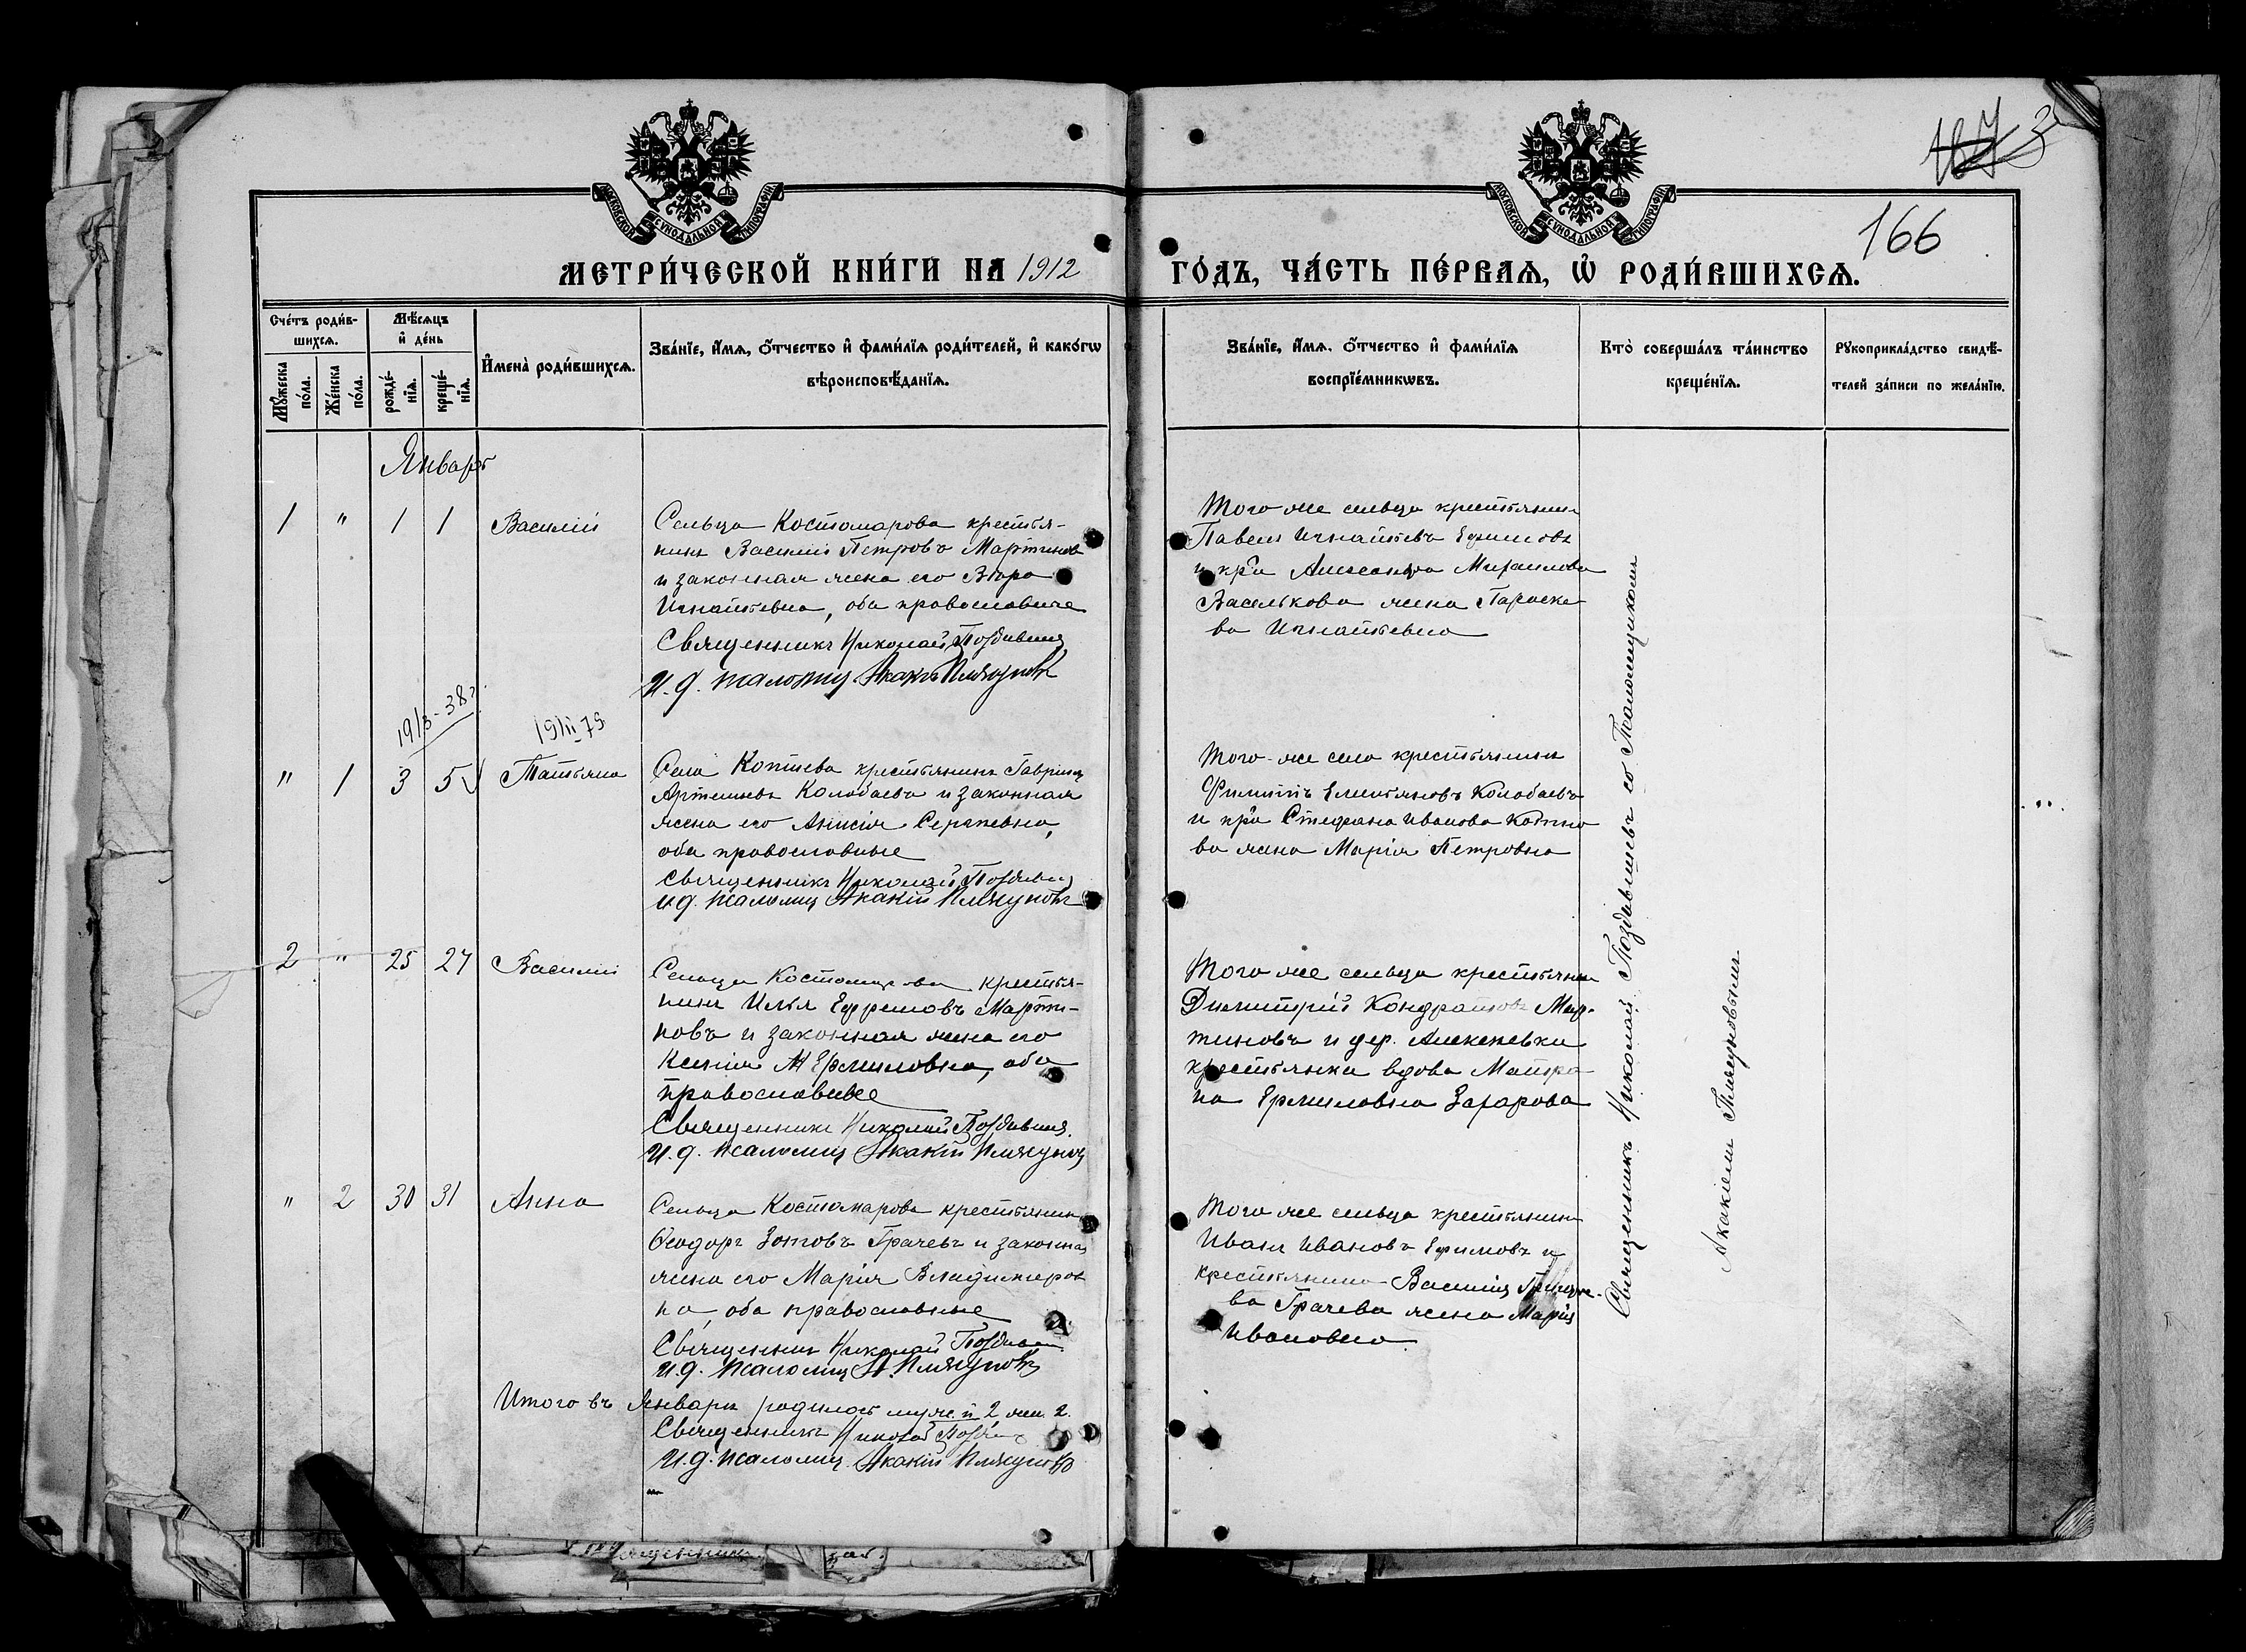 166
МОСКОВСКОЙ СѴНОДАЛЬНОЙ ТИПОГРАФІИ
МОСКОВСКОЙ СѴНОДАЛЬНОЙ ТИПОГРАФІИ
МЕТРИ́ЧЕСКОЙ КНИ́ГИ НА 1912 ГО́ДЪ, ЧА́СТЬ ПЕ́РВАѦ, Ѡ҆ РОДИ́ВШИХСѦ.
Сче́тъ роди́в-
шихсѧ.
Мꙋ́жеска
по́ла.
Же́нска
по́ла.
Мѣ́сѧцъ
и҆ де́нь
рожде́-
нїѧ.
креще́-
нїѧ.
И҆мена̀ роди́вшихсѧ.
Зва́нїе, и҆́мѧ, ѻ҆́тчество и҆ фами́лїѧ роди́телей, и҆ како́гѡ
вѣроисповѣ́данїѧ.
Зва́нїе, и҆́мѧ, ѻ҆́тчество и҆ фами́лїѧ
воспрїе́мникѡвъ.
Кто̀ соверша́лъ та́инство
креще́нїѧ.
Рꙋкоприкла́дство свидѣ́-
телей за́писи по жела́нїю.
Январь
1 " 1 1 Василій
Сельца Костомарова крестья-
нинъ Василій Петровъ Мартинов
и законная жена его
Игнатьевна, оба православные
Священникъ Николай Поздвышев
И. д. псаломщ Акакій Плякуновъ
Того же сельца крестьянин
Павелъ Игнатьевъ Ефимовъ
и кр-а Александра Михаилова
Василькова жена Параске-
ва Игнатьевна
19/3-38 г.
19/II 79
" 1 3 5 Татьяна
Села Коптева крестьянинъ Гавріил
Артемьевъ Колобаевъ и законная
жена его Анисія Сергеевна,
оба православные
Священникъ Николай Поздвышев
И д. псаломщ Акакій Плякуновъ
Того-же села крестьянинъ
Филиппъ Емельяновъ Колобаевъ
и кр-а Стефана Иванова Коптне
ва жена Марія Петровна
2 " 25 27 Василій
Сельца Костомарова крестья-
нинъ Илья Ефремовъ Марти-
новъ и законная жена его
Ксенія Ермиловна, оба
православные
Священникъ Николай Поздвышев
И. д. псаломщ Акакій Плякунов
Того же сельца крестьянин
Димитрій Кондратовъ Мар-
тиновъ и дер. Алексеевки
крестьянка вдова Матре-
на Ермиловна Захарова
" 2 30 31 Анна
Сельца Костомарова крестьянин
Ѳеодоръ Зотовъ Грачевъ и законная
жена его Марія Владимиров
на, оба православные
Священник Николай Поздвышев
И. д. псаломщ А. Плякуновъ
Того же сельца крестьянин
Иванъ Ивановъ Ефимовъ и
крестьянина Василія
ва Грачева жена Марія
Ивановна
Итого въ Январѣ родилось муж. п 2, жен. 2.
Священникъ Николай
И. д. псаломщ. Акакій Плякуновъ
Священникъ Николай Поздвышевъ со Псаломщикомъ
Акакіем Плякуновымъ